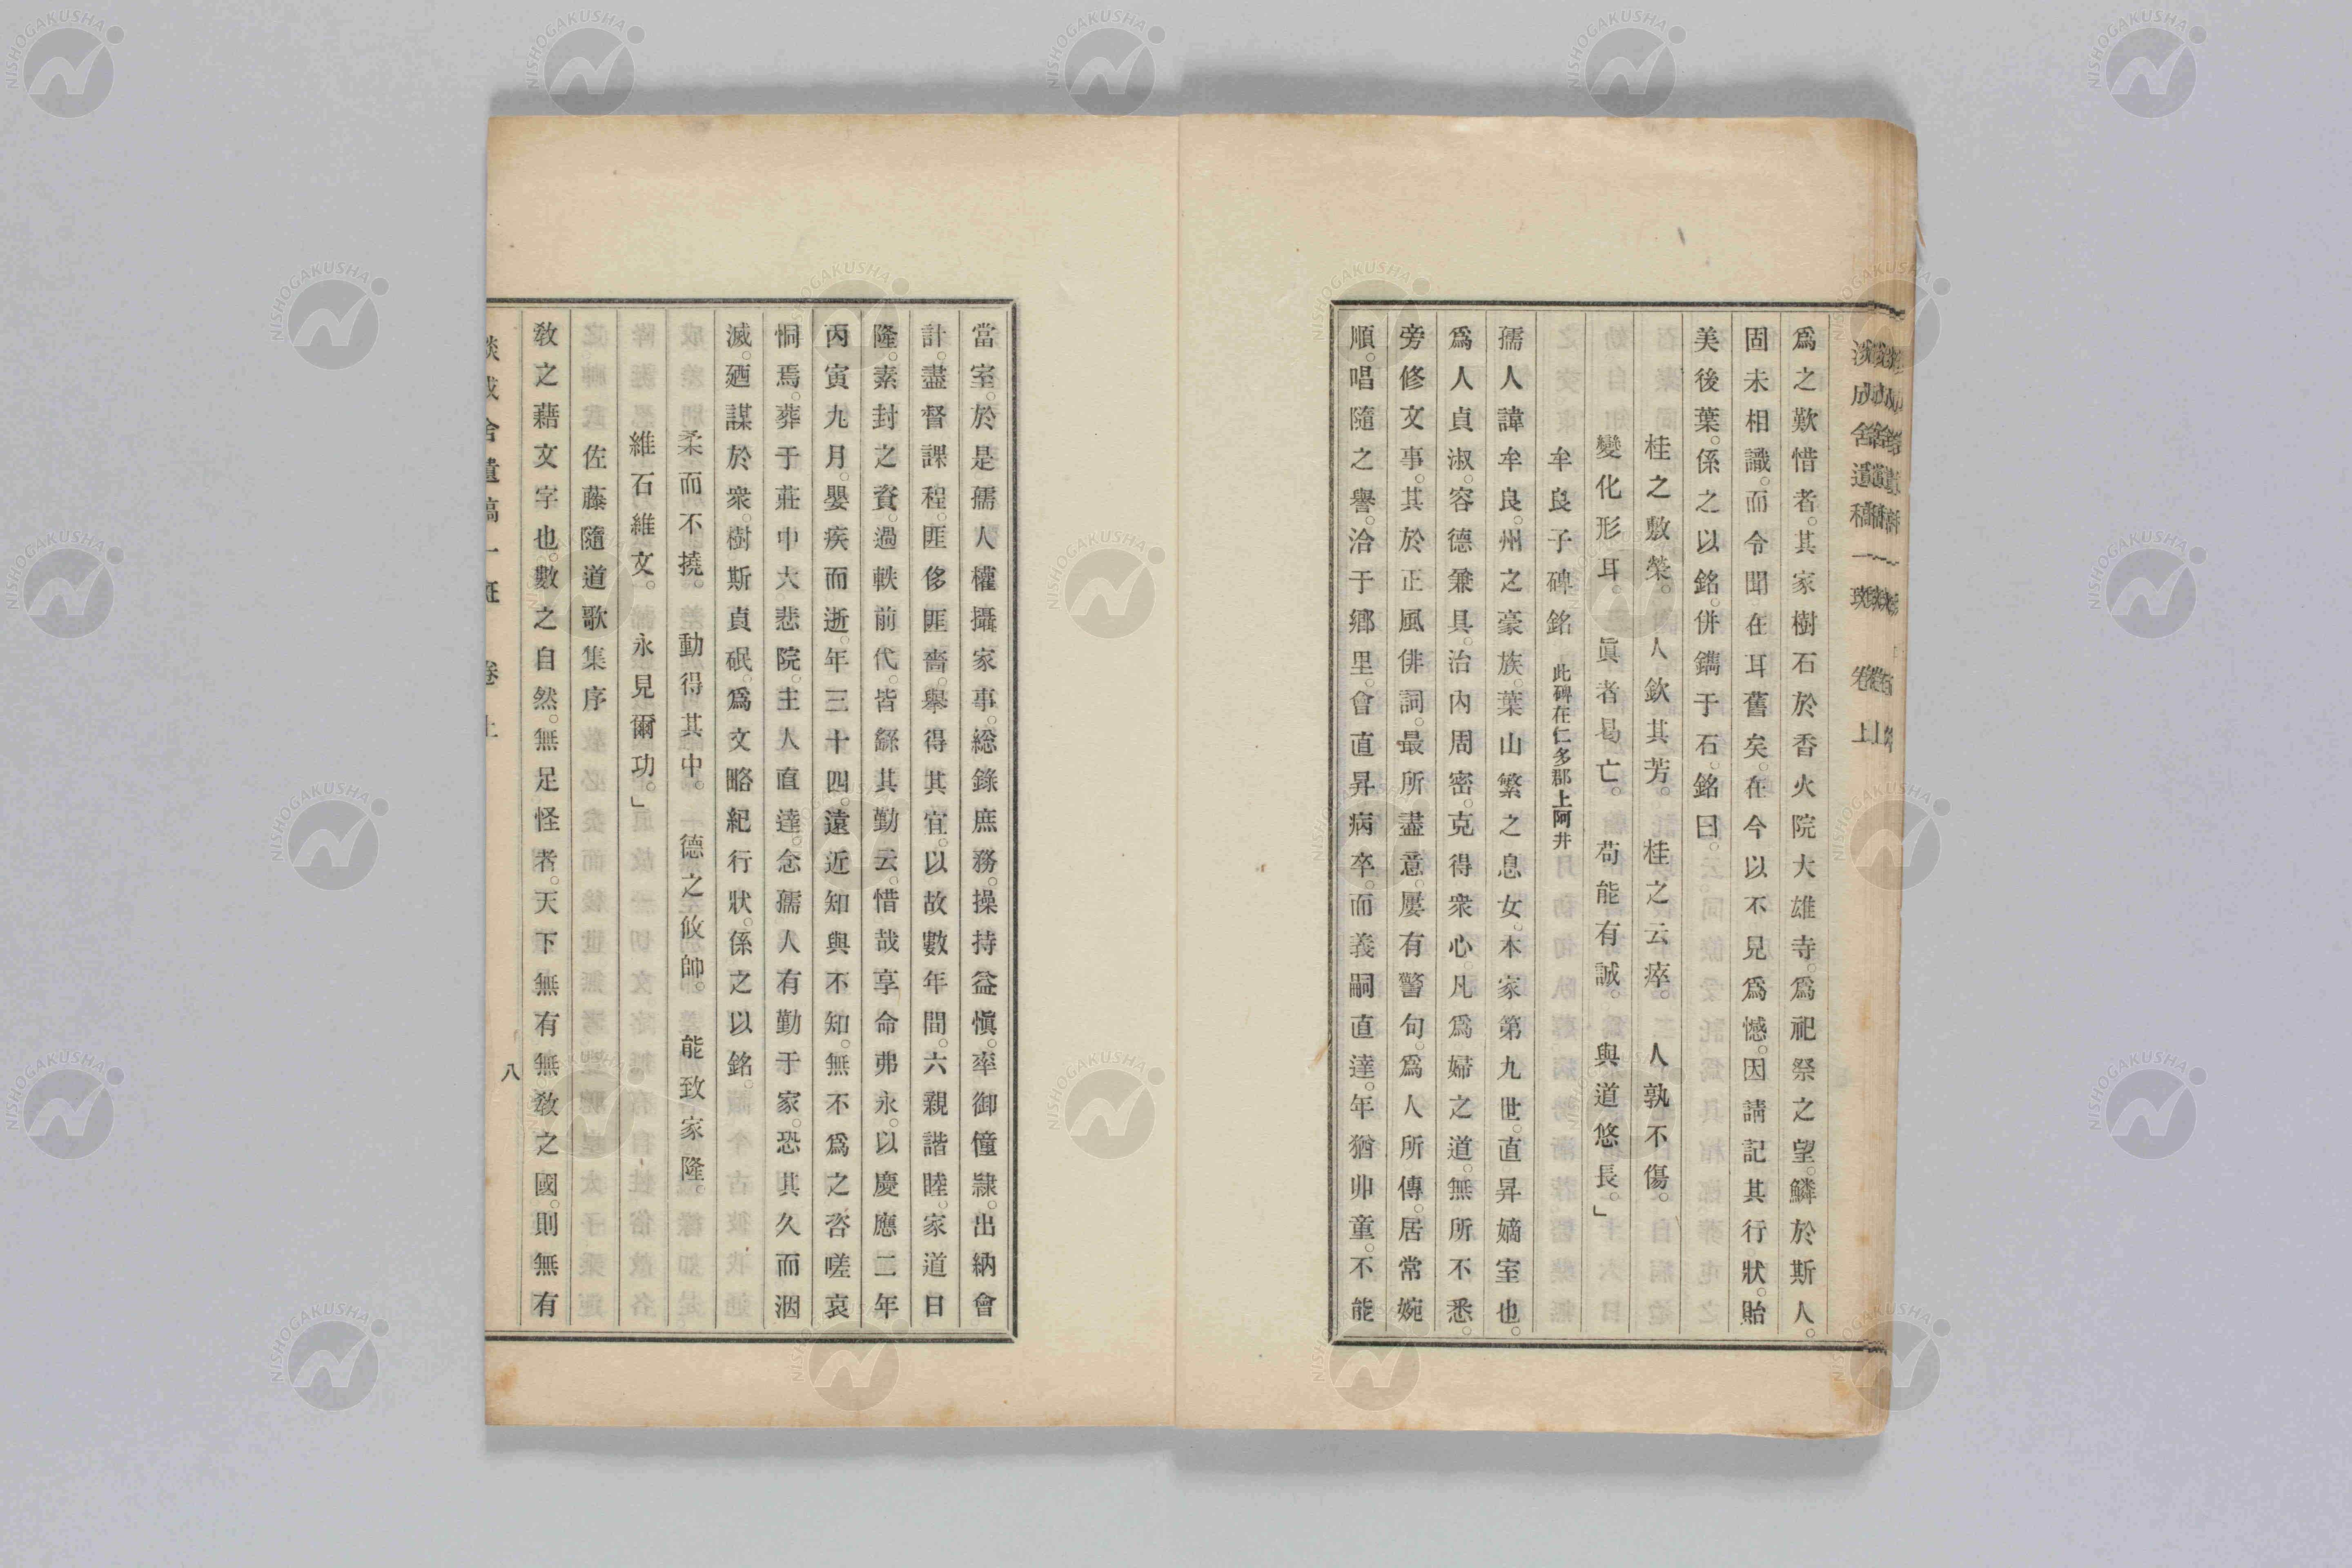 爲之歎惜者。其家樹石於香火院大雄寺。爲祀祭之望。鱗於斯人。
固未相識。而令聞在耳舊矣。在今以不見爲憾。因請記其行狀。貽
美後葉。係之以銘。併鐫于石。銘曰。
桂之敷榮。人欽其芳。桂之云瘁。人孰不傷。
變化形耳。眞者曷亡。苟能有誠。與道悠長。」
牟良子碑銘 此碑在仁多郡上阿井
孺人諱牟良。州之豪族。葉山繁之息女。本家第九世。直昇嫡室也。
爲人貞淑。容德兼具。治內周密。克得衆心。凡爲婦之道。無所不悉。
旁修文事。其於正風俳詞。最所盡意。屢有警句。爲人所傳。居常婉
順。唱隨之譽。洽于鄉里。會直昇病卒。而義嗣直達。年猶丱童。不能
當室。於是孺人權攝家事。總錄庶務。操持益愼。率御僮隷。出納會
計。盡督課程。匪侈匪嗇。擧得其宜。以故數年間。六親諧睦。家道日
隆。素封之資。過軼前代。皆繇其勤云。惜哉享命弗永。以慶應二年
丙寅九月。嬰疾而逝。年三十四。遠近知與不知。無不爲之咨嗟哀
恫焉。葬于莊中大悲院。主人直達。念孺人有勤于家。恐其久而湮
滅。廼謀於衆。樹斯貞珉。爲文略紀行狀。係之以銘。
柔而不撓。動得其中。德之攸帥。能致家隆。
維石維文。永見爾功。」
佐藤隨道歌集序
敎之藉文字也。數之自然。無足怪者。天下無有無敎之國。則無有
淡成舍遺稿一斑 卷上
八
淡成舍遺稿一斑 卷上